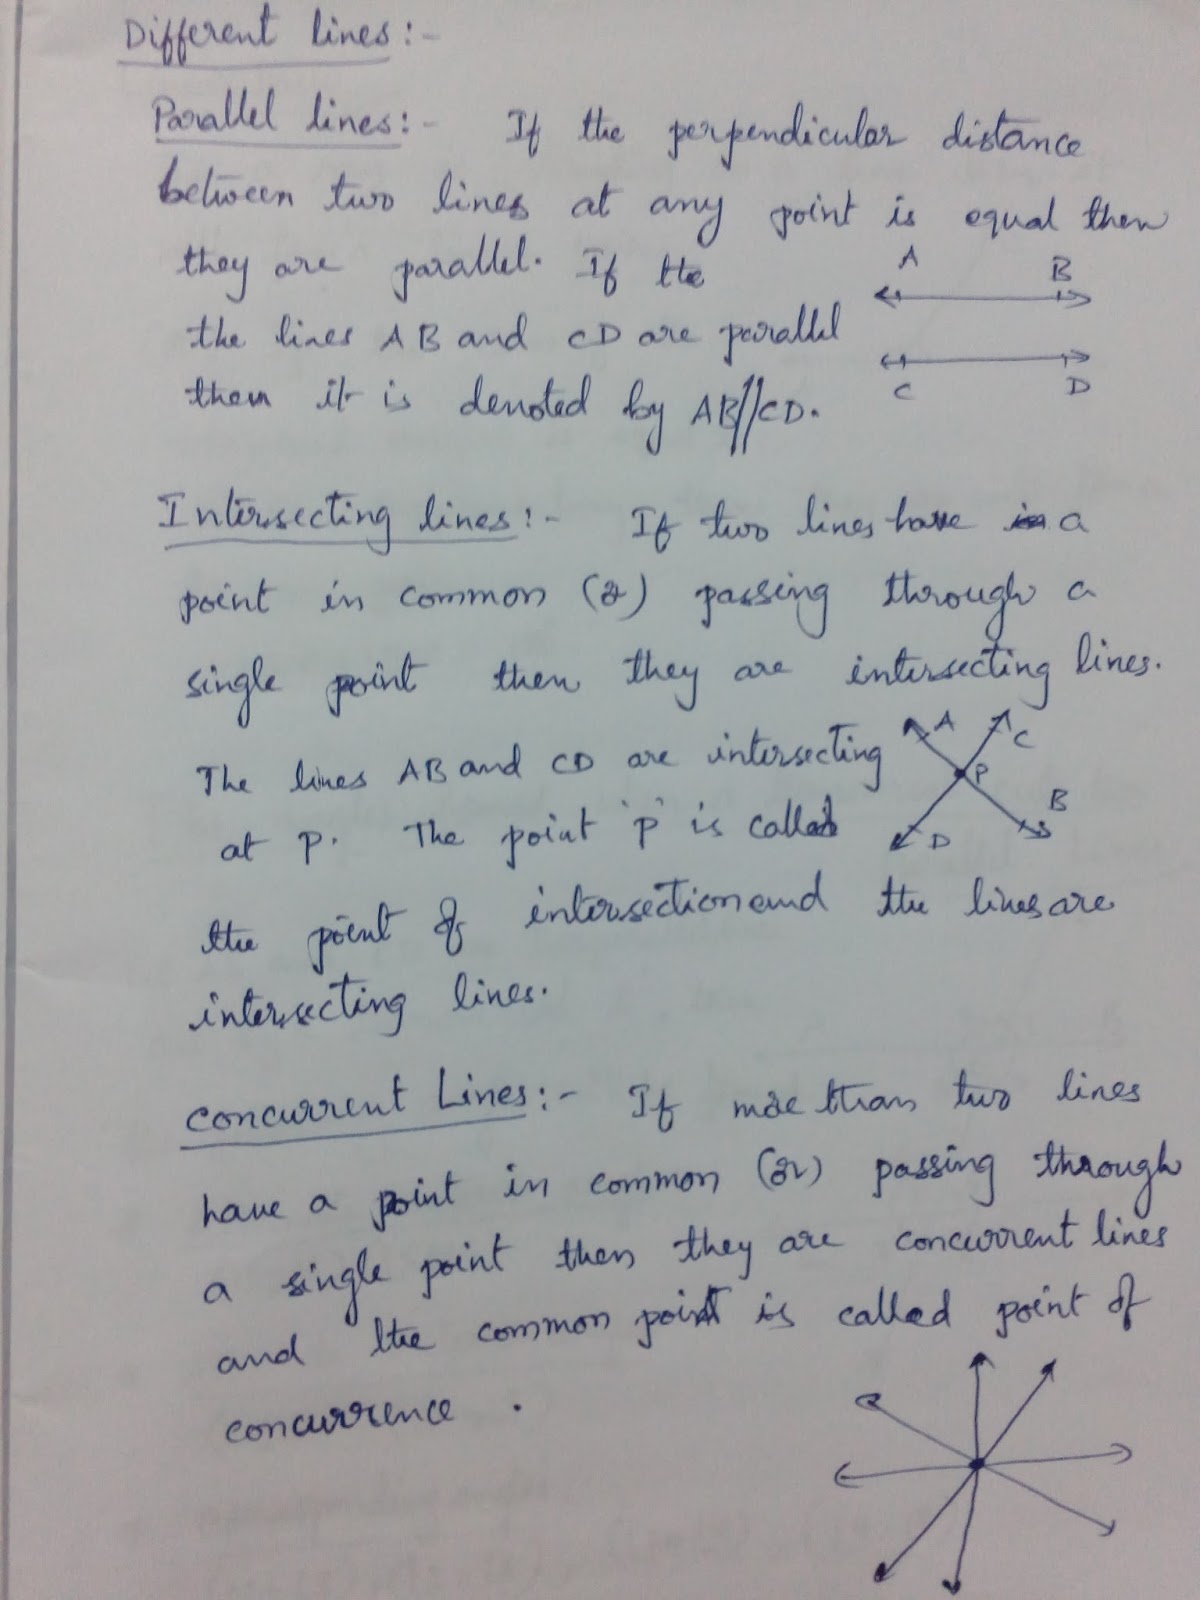 Different lines:-
Parallel lines:- If the perpendicular distance
between two lines at any point is equal then
they are parallel. If the
A B
the lines AB and CD are parallel
C D
then it is denoted by AB//CD.
Intersecting lines:- If two lines have a
point in common (or) passing through a
single point then they are intersecting lines.
A C
The lines AB and CD are intersecting
P
B
at P. The point 'P' is called
D
the point of intersection and the lines are
intersecting lines.
Concurrent Lines:- If more than two lines
have a point in common (or) passing through
a single point then they are concurrent lines
and the common point is called point of
concurrence.